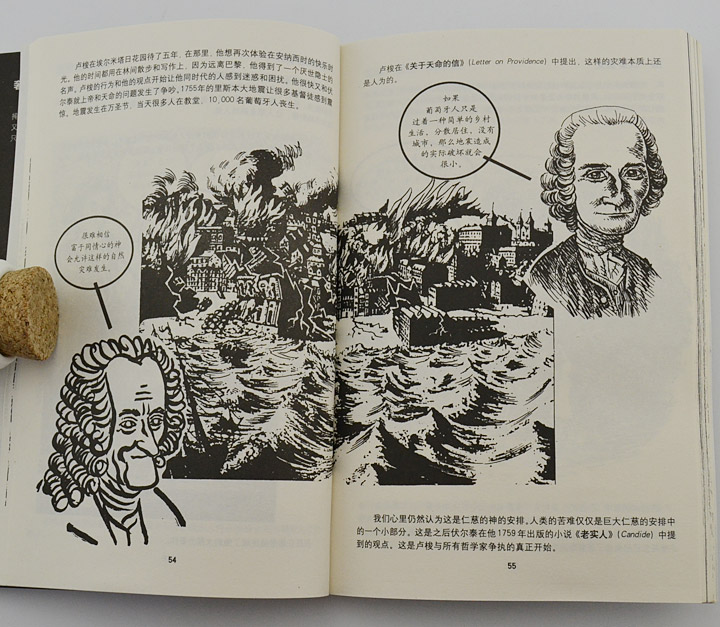 卢梭在埃尔米塔日花园待了五年，在那里，他想再次体验在安纳西时的快乐时
光。他的时间都用在林间散步和写作上，因为远离巴黎，他得到了一个厌世隐士的
名声。卢梭的行为和他的观点开始让他同时代的人感到迷惑和困扰。他很快又和伏
尔泰就上帝和天命的问题发生了争吵。1755年的里斯本大地震让很多基督徒感到震
惊。地震发生在万圣节，当天很多人在教堂，10,000名葡萄牙人丧生。
很难相信
富于同情心的神
会允许这样的自然
灾难发生。
54
卢梭在《关于天命的信》（Letter on Providence）中提出，这样的灾难本质上还
是人为的。
如果
葡萄牙人只是
过着一种简单的乡村
生活，分散居住，没有
城市，那么地震造成
的实际破坏就会
很小。
我们心里仍然认为这是仁慈的神的安排。人类的苦难仅仅是巨大仁慈的安排中
的一个小部分。这是之后伏尔泰在他1759年出版的小说《老实人》（Candide）中提
到的观点。这是卢梭与所有哲学家争执的真正开始。
55